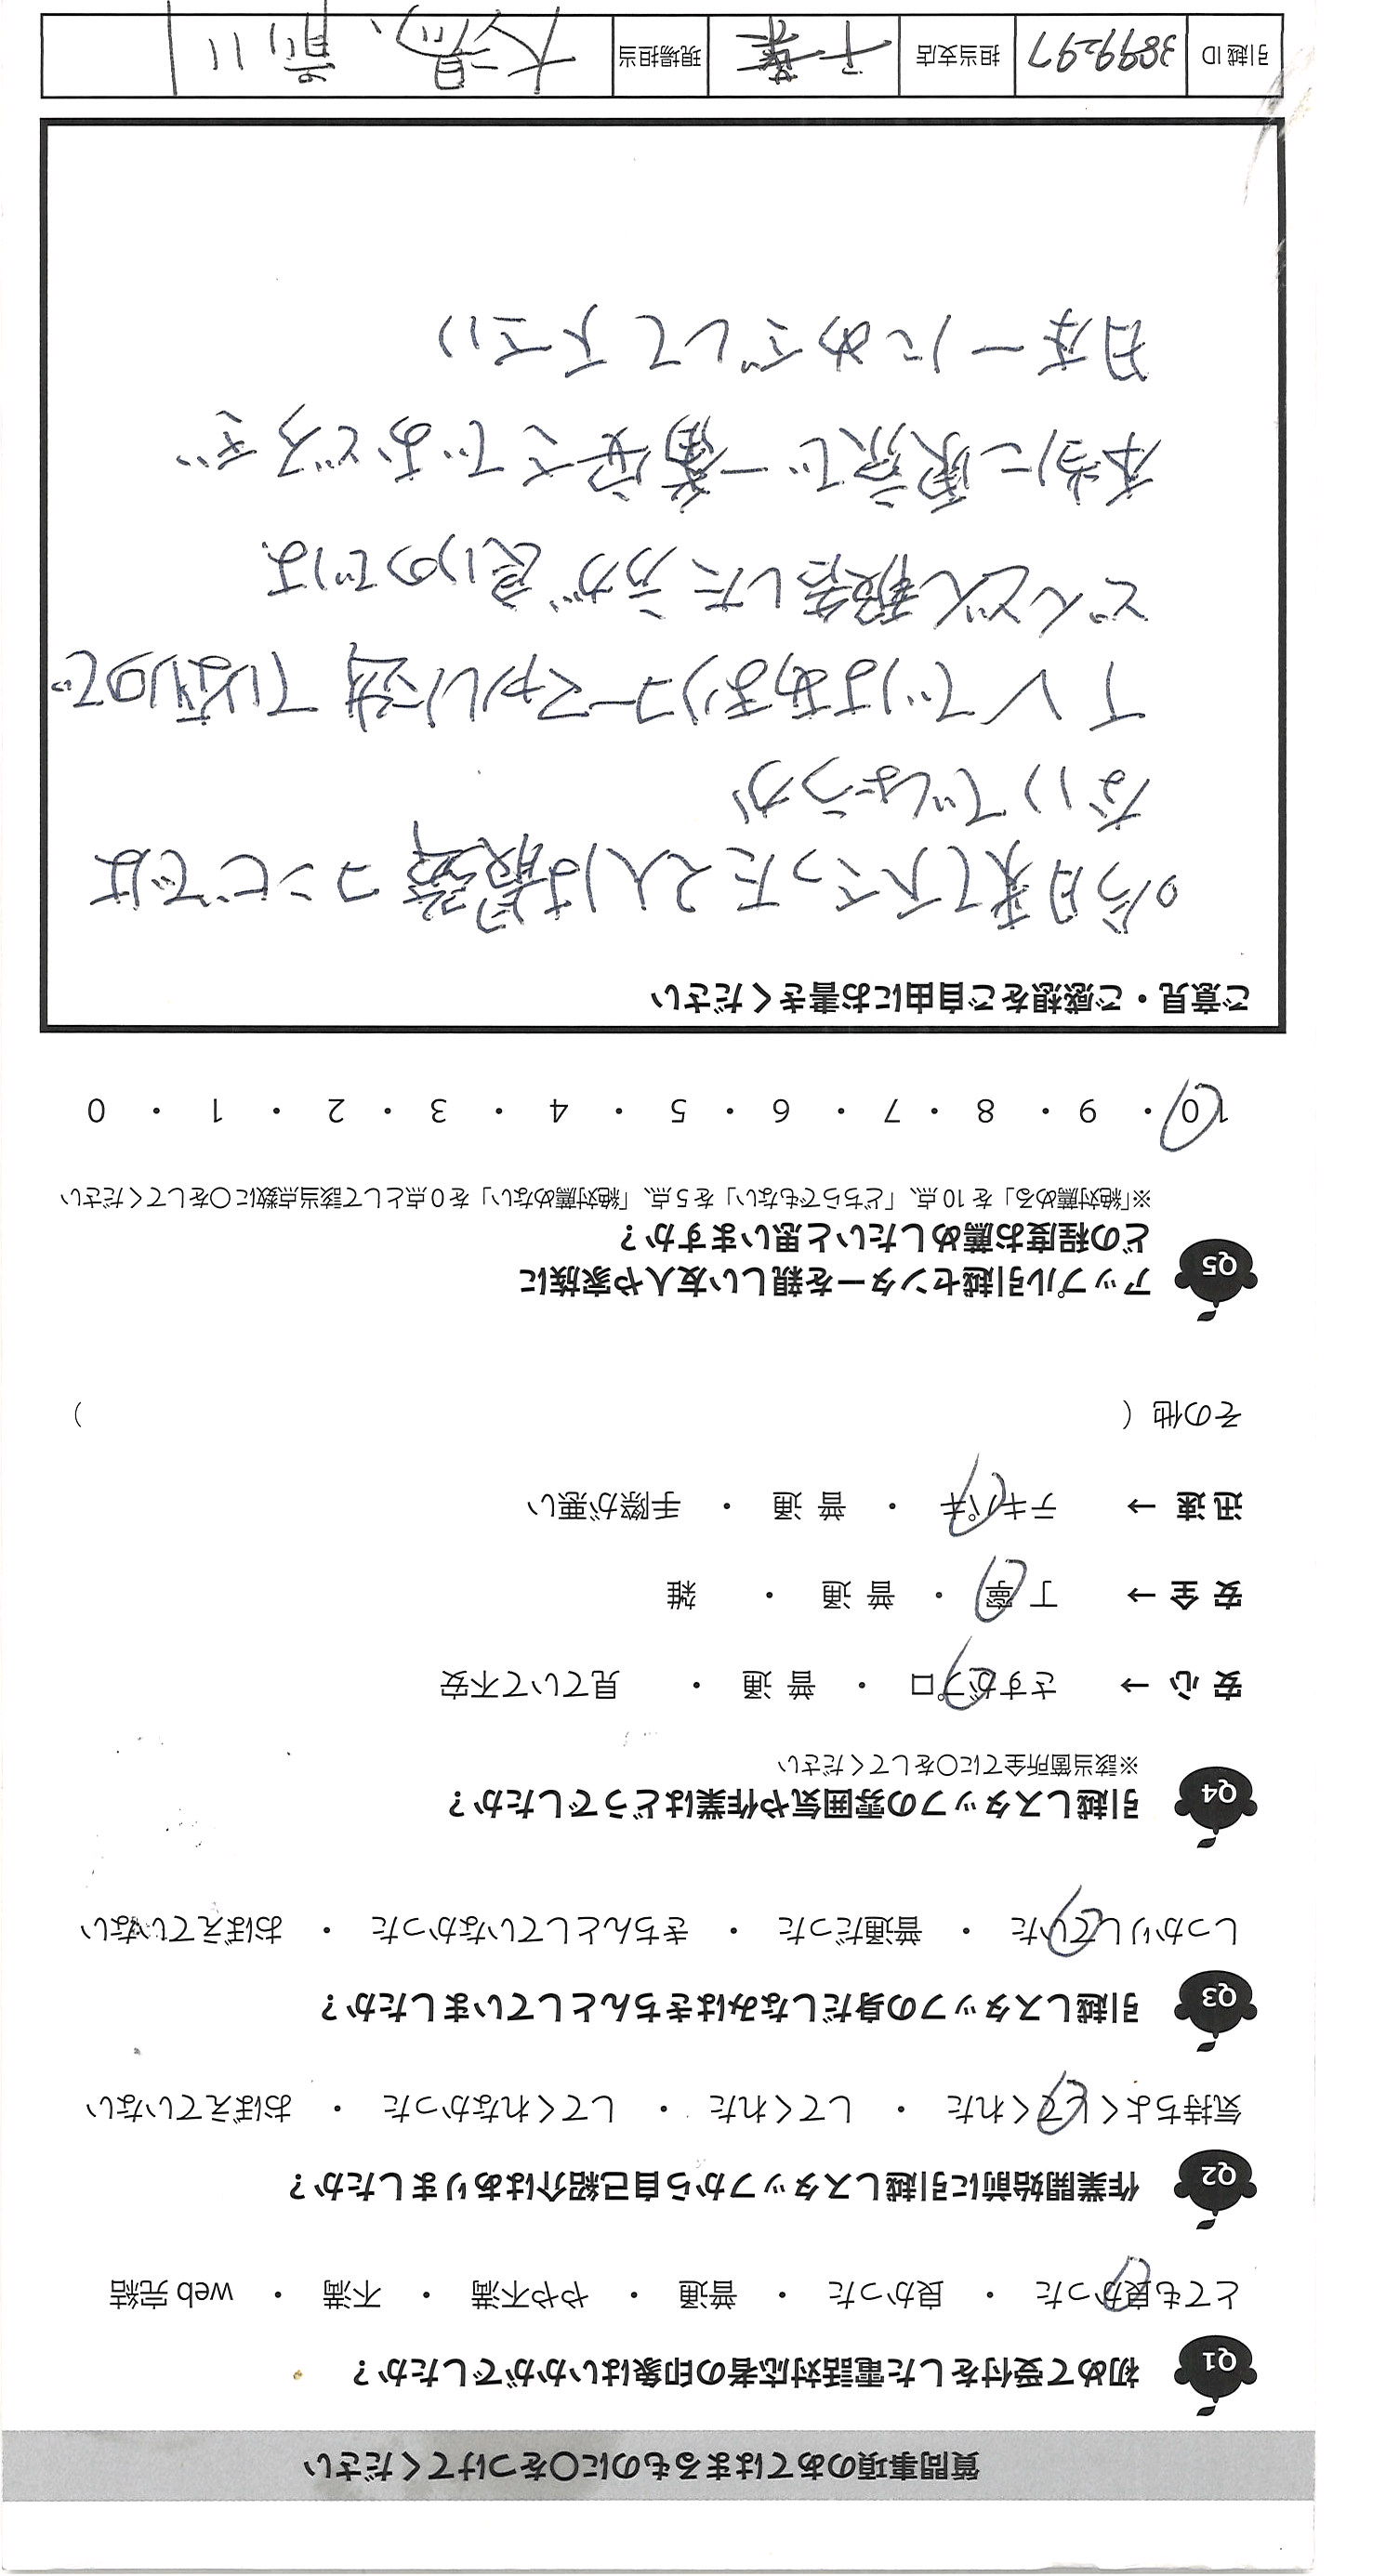 質問事項のあてはまるものに〇をつけてください
Q1 初めて受付をした電話対応者の印象はいかがでしたか？
とても良かった ・ 良かった ・ 普通 ・ やや不満 ・ 不満 ・ web 完結
Q2 作業開始前に引越しスタッフから自己紹介はありましたか？
気持ちよくしてくれた ・ してくれた ・ してくれなかった ・ おぼえていない
Q3 引越しスタッフの身だしなみはきちんとしていましたか？
しっかりしていた ・ 普通だった ・ きちんとしていなかった ・ おぼえていない
Q4 引越しスタッフの雰囲気や作業はどうでしたか？
※該当箇所全てに〇をしてください
安心 → さすがプロ ・ 普通 ・ 見ていて不安
安全 → 丁寧 ・ 普通 ・ 雑
迅速 → テキパキ ・ 普通 ・ 手際が悪い
その他（ ）
Q5 アップル引越センターを親しい友人や家族に
どの程度お薦めしたいと思いますか？
※「絶対薦める」を 10 点、「どちらでもない」を 5 点、「絶対薦めない」を 0 点として該当点数に〇をしてください
10 ・ 9 ・ 8 ・ 7 ・ 6 ・ 5 ・ 4 ・ 3 ・ 2 ・ 1 ・ 0
ご意見・ご感想をご自由にお書きください
今日来て下さった2人は最強コンビでは
ないでしょうか
TVではあまりコマーシャル流していないので
どんどん報告した方が良いのでは
本当に東京で一番安さでおどろき
日本一にめざして下さい
引越 ID 3899297 担当支店 千葉 現場担当 大湯、前川